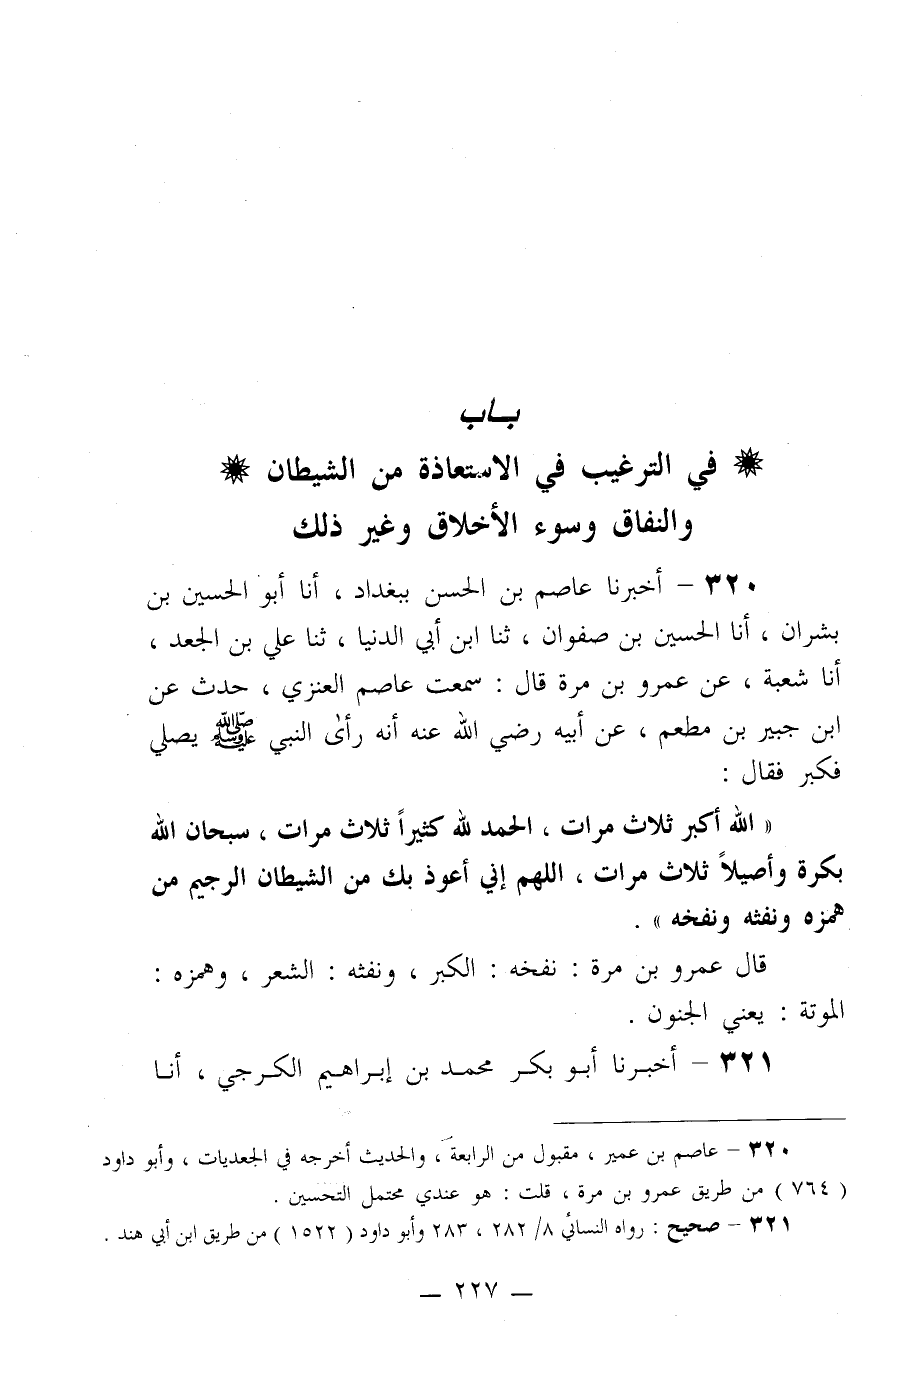 باب
❋ في الترغيب في الاستعاذة من الشيطان ❋
والنفاق وسوء الأخلاق وغير ذلك
٣٢٠ – أخبرنا عاصم بن الحسن ببغداد ، أنا أبو الحسين بن
بشران ، أنا الحسين بن صفوان ، ثنا ابن أبي الدنيا ، ثنا علي بن الجعد ،
أنا شعبة ، عن عمرو بن مرة قال : سمعت عاصم العنزي ، حدث عن
ابن جبير بن مطعم ، عن أبيه رضي الله عنه أنه رأىٰ النبي ﷺ يصلي
فكبر فقال :
« الله أكبر ثلاث مرات ، الحمد لله كثيراً ثلاث مرات ، سبحان الله
بكرة وأصيلاً ثلاث مرات ، اللهم إني أعوذ بك من الشيطان الرجيم من
همزه ونفثه ونفخه » .
قال عمرو بن مرة : نفخه : الكبر ، ونفثه : الشعر ، وهمزه :
الموتة : يعني الجنون .
٣٢١ – أخبرنا أبو بكر محمد بن إبراهيم الكرجي ، أنا
٣٢٠ – عاصم بن عمير ، مقبول من الرابعة ، والحديث أخرجه في الجعديات ، وأبو داود
( ٧٦٤ ) من طريق عمرو بن مرة ، قلت : هو عندي محتمل التحسين .
٣٢١ – صحيح : رواه النسائي ٨/ ٢٨٢ ، ٢٨٣ وأبو داود ( ١٥٢٢ ) من طريق ابن أبي هند .
– ٢٢٧ –